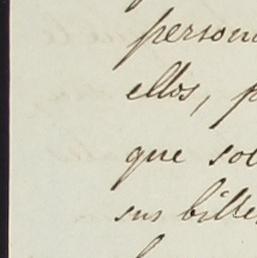 person
ellos, p
que so
sus bille